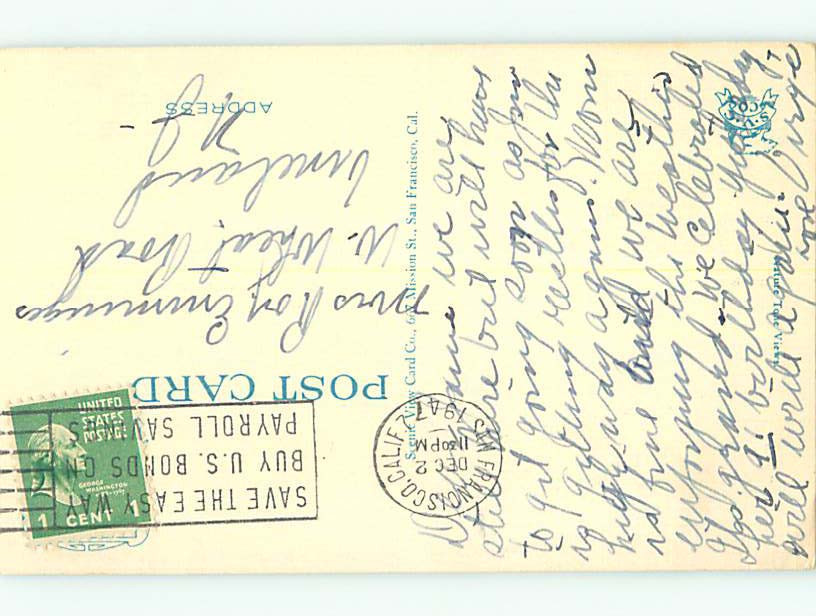 POST CARD
ADDRESS
Scenic View Card Co., Mission St., San Francisco, Cal.
UNITED STATES POSTAGE
GEORGE WASHINGTON
1 CENT 1
SAN FRANCISCO, CALIF.
DEC 2
11:30 PM
1947
SAVE THE EASY WAY
BUY U.S. BONDS ON
PAYROLL SAVINGS
Mrs Roy Emminges
W. Wheat Road
Vineland
N. J.
we are
still here but will have
to get going soon as Jim
is getting restless for the
hiway again. Mom
is fine and we are
enjoying the weather
Its grand. We celebrated
her 91 birthday yesterday
will write again.
Love Virge